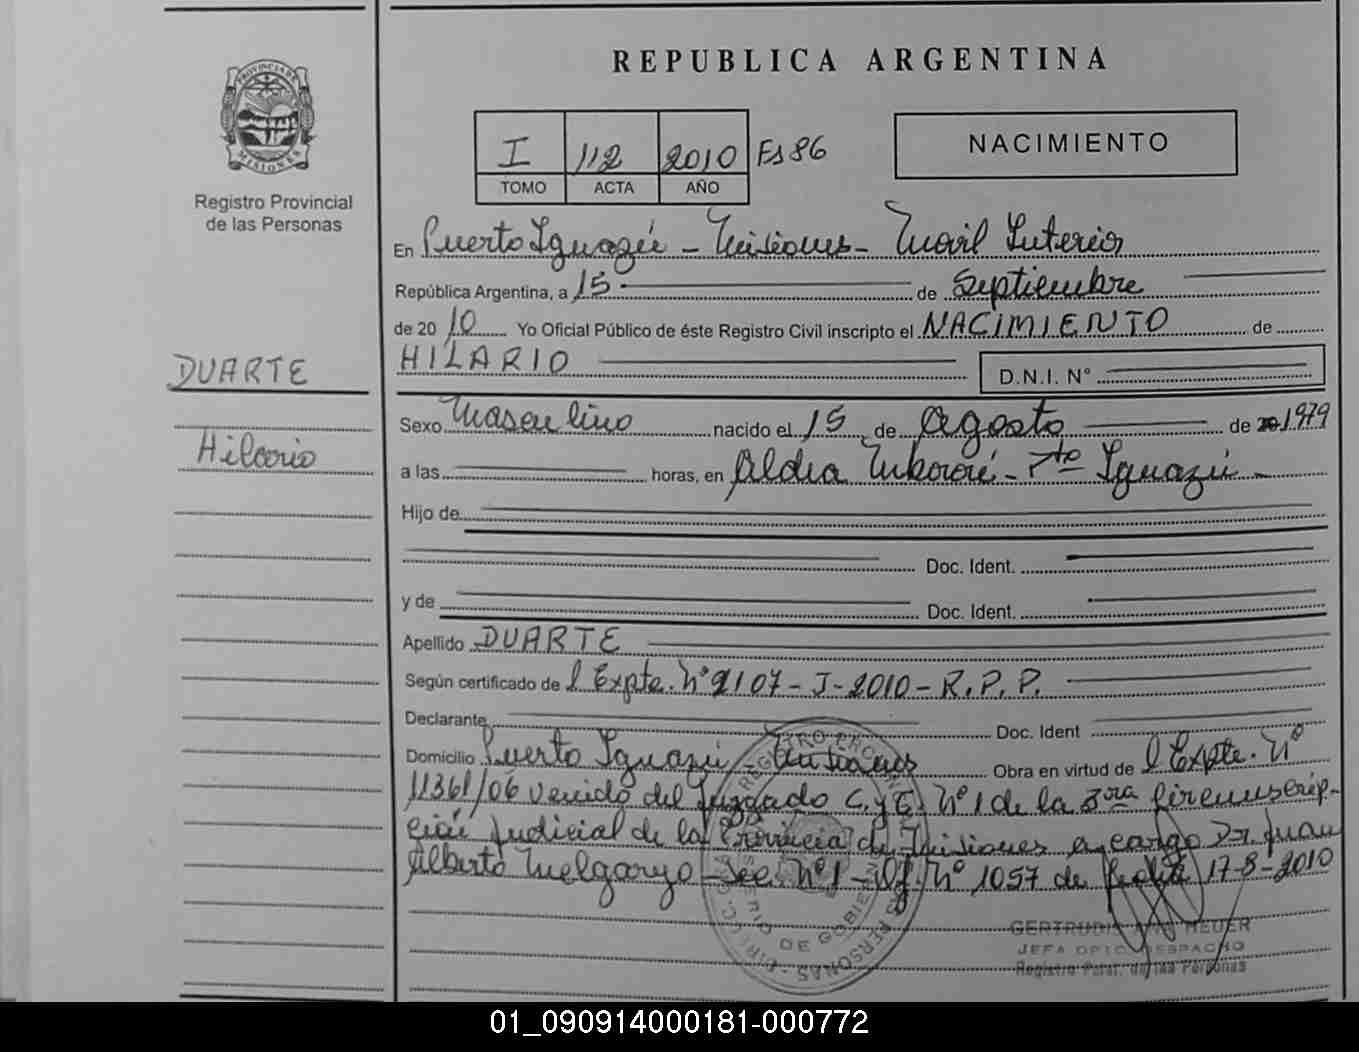 REPUBLICA ARGENTINA
PROVINCIA DE
MISIONES
Registro Provincial
de las Personas
I 112 2010 Fs 86
TOMO ACTA AÑO
NACIMIENTO
En Puerto Iguazú - Misiones - Movil Interior
República Argentina, a 15 de Septiembre
de 20 10 Yo Oficial Público de éste Registro Civil inscripto el NACIMIENTO de
HILARIO
D.N.I. N°
DUARTE
Hilario
Sexo Masculino nacido el 15 de Agosto de 1979
a las horas, en Aldea - Pto Iguazú -
Hijo de
Doc. Ident.
y de Doc. Ident.
Apellido DUARTE
Según certificado de l Expte. N° 2107 - J - 2010 - R. P. P.
Declarante Doc. Ident
Domicilio Puerto Iguazú - Misiones Obra en virtud de l Expte. N°
11361/06 venido del Juzgado C. y C. N° 1 de la 3ra Circunscrip-
ción Judicial de la Provincia de Misiones a cargo Dr. Juan
Alberto Melgarejo - Sec. N° 1 - Of. N° 1057 de fecha 17-8-2010
GERTRUDIS HEUER
JEFA DPTO DESPACHO
Registro Pcial. de las Personas
01_090914000181-000772